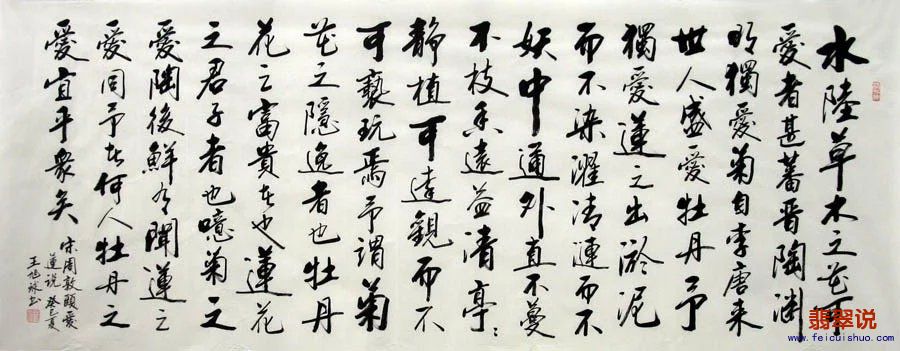 水陸草木之花可
愛者甚蕃晋陶渊
明獨愛菊自李唐来
世人盛愛牡丹予
獨愛蓮之出淤泥
而不染濯清漣而不
妖中通外直不蔓
不枝香遠益清亭:
静植可遠觀而不
可褻玩焉予謂菊
花之隱逸者也牡丹
花之富貴者也蓮花
之君子者也噫菊之
愛陶後鮮有聞蓮之
愛同予者何人牡丹之
愛宜乎衆矣
宋周敦頤愛
蓮说 癸巳夏
翡翠说
www.feicuishuo.com